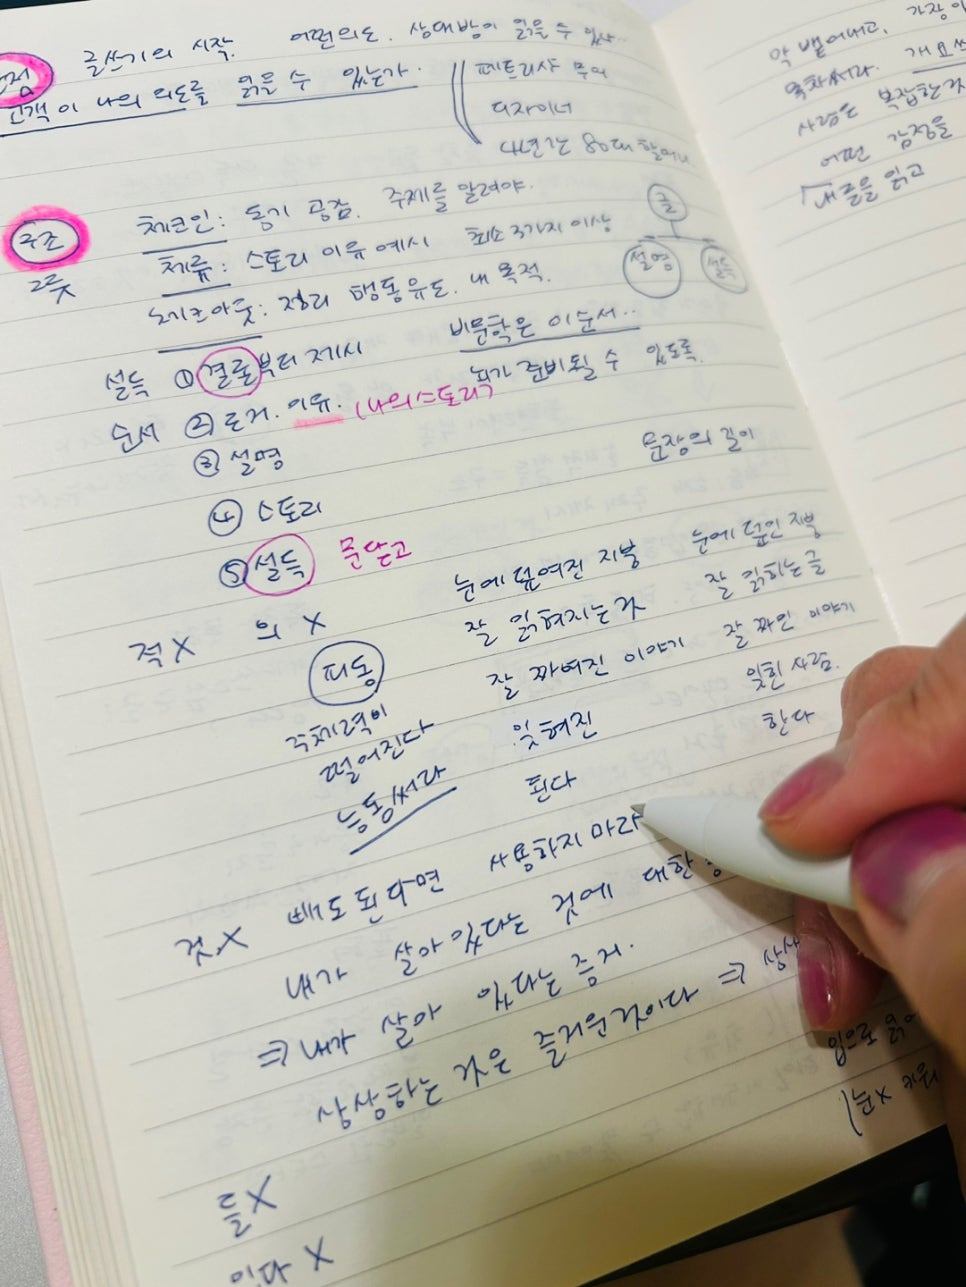 글쓰기의 시작. 어떤의도. 상대방이 읽을 수 있나..
고객이 나의 의도를 읽을 수 있는가.
패트리샤 무어
디자이너
4년간 80대 할머니
구조
체크인: 동기 공감. 주제를 알려야.
체류: 스토리 이유 예시 최소 3가지 이상
체크아웃: 정리 행동유도. 내 목적.
글
설명
설득
비문학은 이순서..
설득 ① 결론부터 제시
순서 ② 근거. 이유. (나의스토리)
③ 설명
④ 스토리
⑤ 설득 문닫고
문장의 길이
적X 의X
피동
주체력이
떨어진다
능동써라
눈에 덮여진 지붕 눈에 덮인 지붕
잘 읽혀지는 잘 읽히는 글
잘 짜여진 이야기 잘 짜인 이야기
잊혀진 잊힌 사람.
된다 한다
것X 빼도된다면 사용하지 마라
내가 살아있다는 것에 대한
⇒ 내가 살아 있다는 증거.
상상하는 것은 즐거운것이다 ⇒ 상상
들X
있다 X
막 뱉어내고, 가장
목차써라. 개요
사람은 복잡한
어떤 감정을
내글을 읽고
입으로 읽어